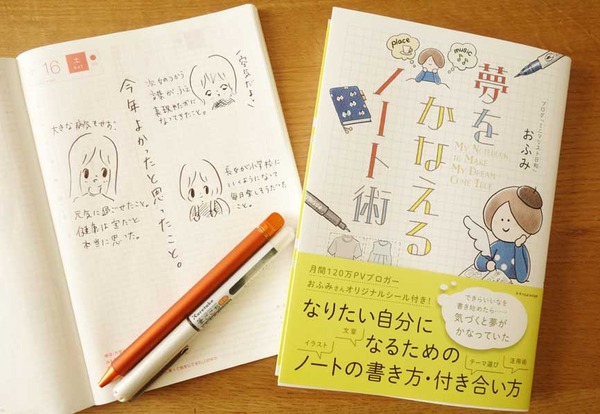 16
土
今年よかったと思ったこと。
次女のうから
言葉がふえ
表現ゆたかに
なってきたこと。
大きな病気もせず、
元気に過ごせたこと。
健康は宝だと
本当に思った。
長女が小学校に
いくようになって
毎日楽しそうだった
こと。
place
music
夢を
かなえる
ノート術
My Notebook
to Make
My Dream
Come True
ブロガー、ミニマリスト日和
おふみ
月間120万PVブロガー
おふみさんオリジナルシール付き!
できたらいいなを
書き始めたら……
気づくと夢が
かなっていた
なりたい自分に
なるための
ノートの書き方・付き合い方
文章
イラスト
テーマ選び
活用術